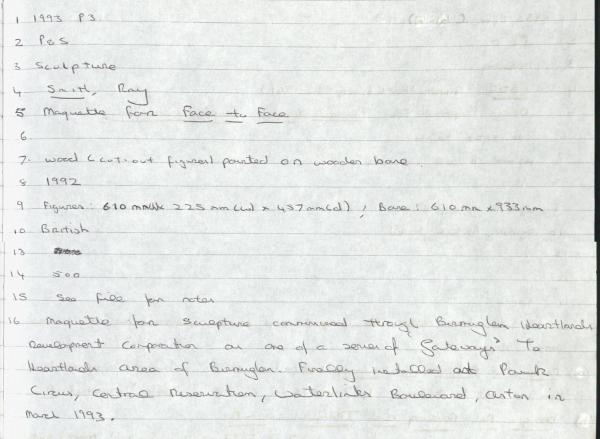 1 1993 P3
2 P&S
3 Sculpture
4 Smith, Ray
5 Maquette for Face to Face
6
7. wood (cut-out figures) painted on wooden base.
8 1992
9 Figures: 610 mm 225 mm (w) x 437 mm (d) ; Base: 610 mm x 933 mm
10 British
13
14 500
15 See file for notes
16 Maquette for sculpture commissioned through Birmingham Heartlands
Development Corporation as one of a series of 'Gateways' to
Heartlands area of Birmingham. Finally installed at Park
Circus, Central Reservation, Waterlinks Boulevard, Aston in
March 1993.